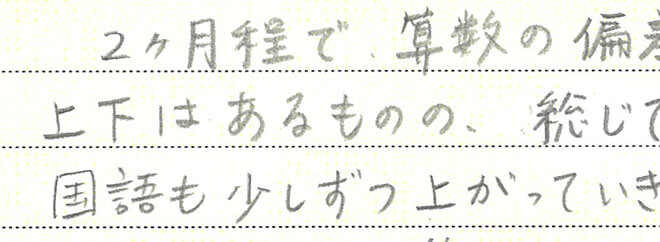 2ヶ月程で、算数の偏差
上下はあるものの、総じて
国語も少しずつ上がっていき